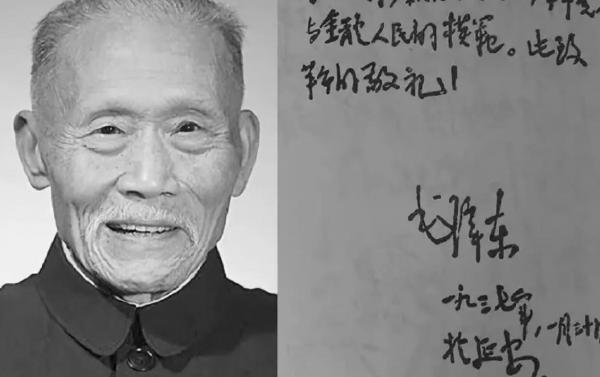 与全體人民的模範。此致
革命的敬礼!
毛澤东
一九三七年,一月三十
於延安